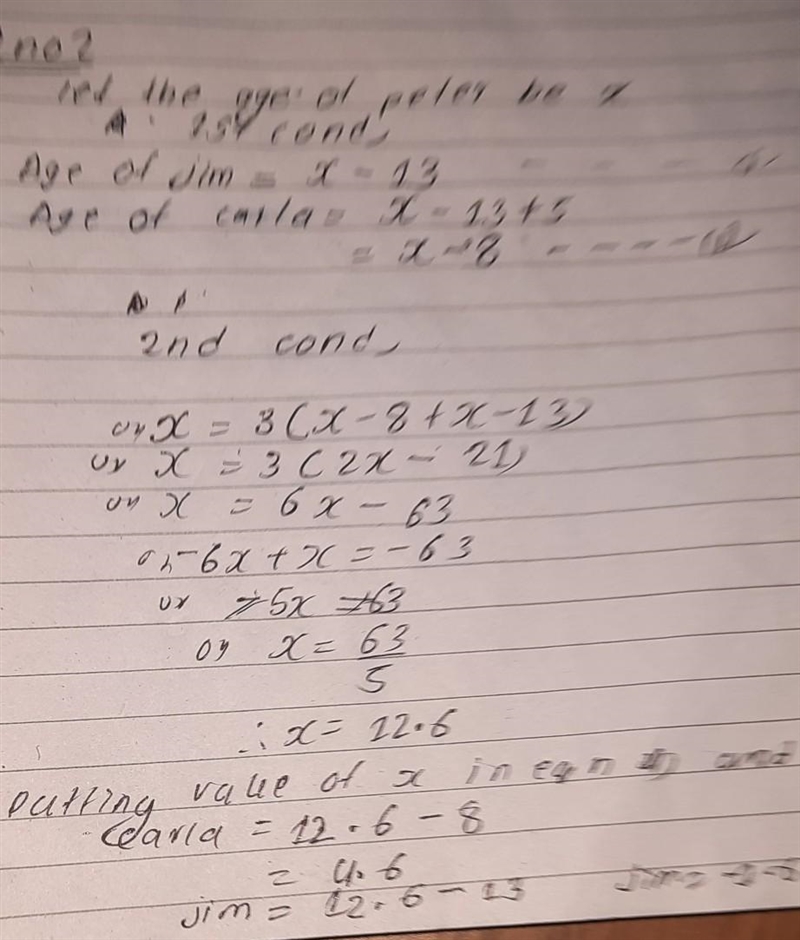 no 2
let the age of peter be x
1st cond,
Age of Jim = x - 13 - - - -
Age of carla = x - 13 + 5
= x - 8 - - - - -
2nd cond,
or x = 3(x - 8 + x - 13)
or x = 3(2x - 21)
or x = 6x - 63
or -6x + x = -63
or -5x = -63
or x = 63/5
∴ x = 12.6
Putting value of x in eqn and
Carla = 12.6 - 8
= 4.6
Jim = 12.6 - 13